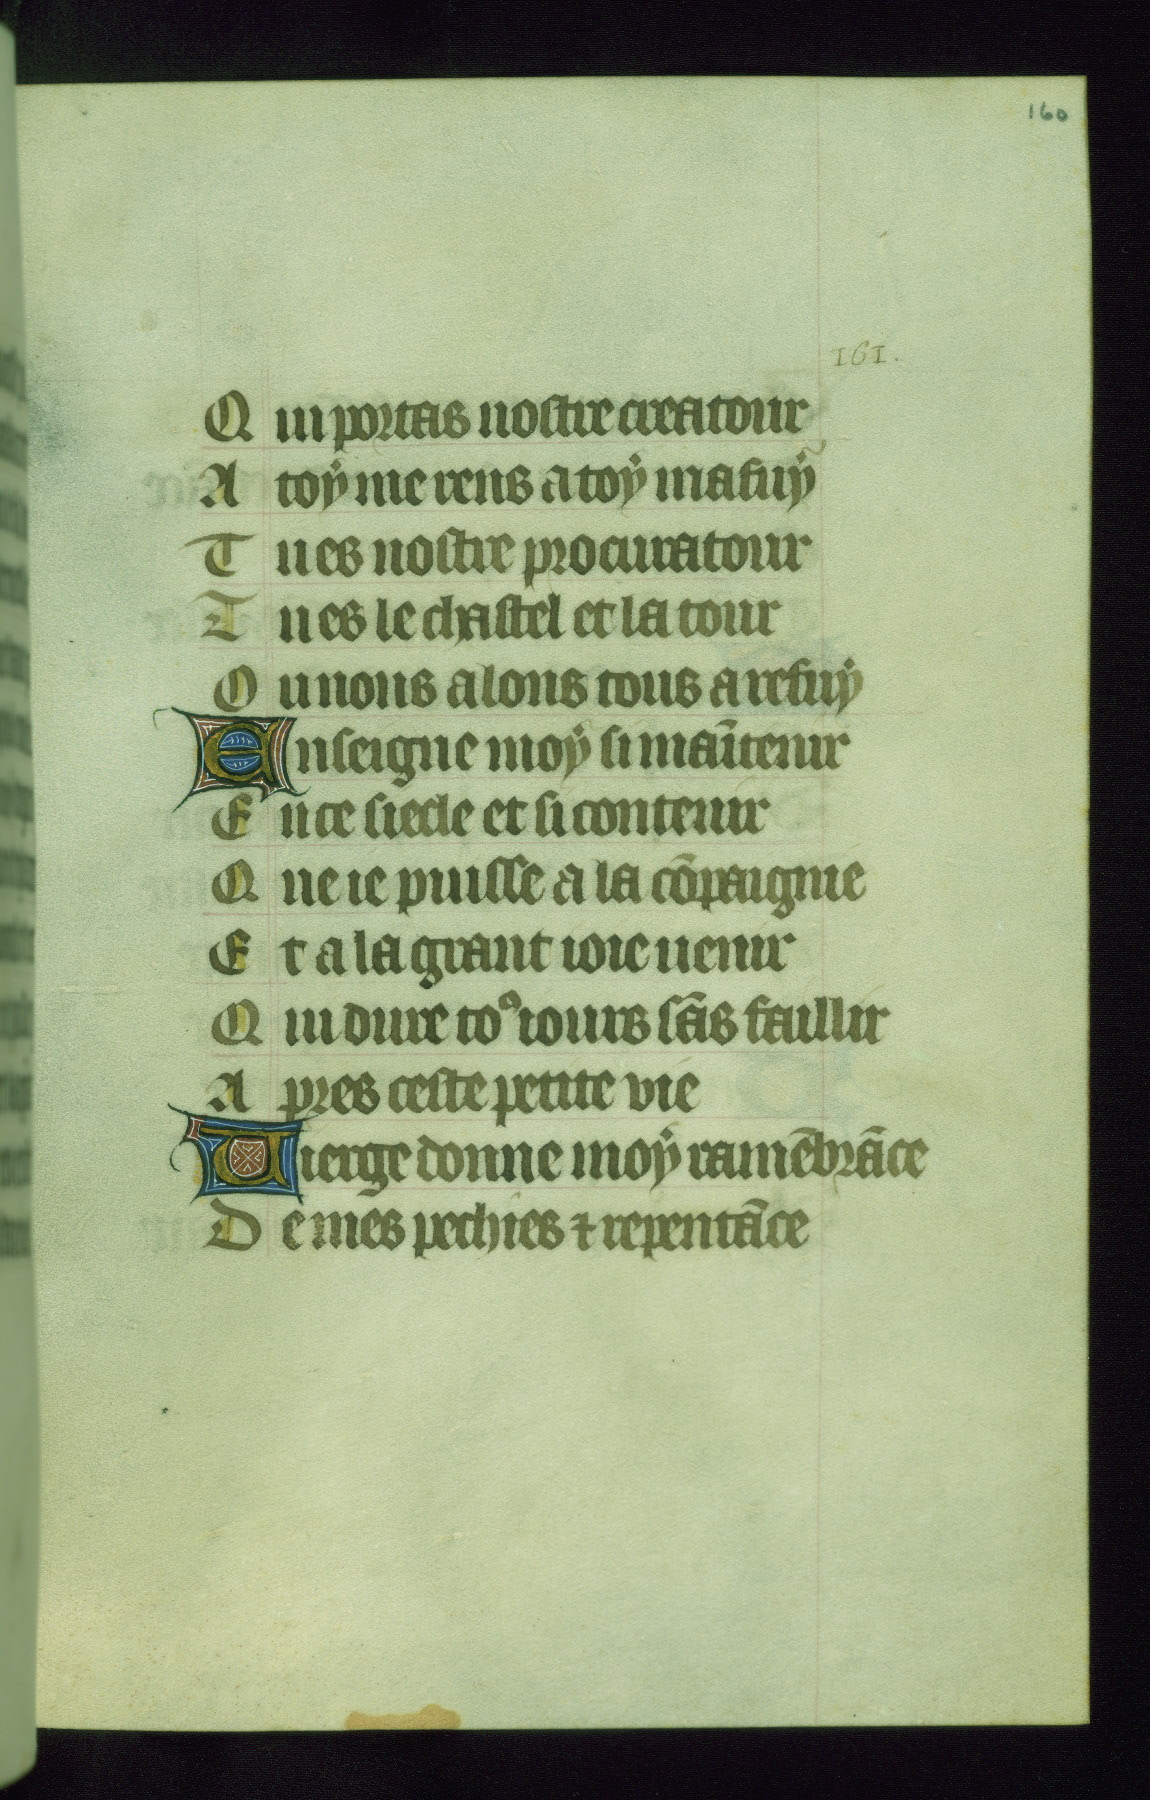 160
161.
Qui portas nostre creatour
A toÿ me rens a toÿ mafuÿ
Tu es nostre procuratour
Tu es le chastel et la tour
Ou nous alons tous a refuÿ
Enseigne moÿ si maītenir
En ce siecle et si contenir
Que ie puisse a la cōpaignie
Et a la grant ioie uenir
Qui dure toꝰ iours sās faillir
Apres ceste petite vie
Uierge donne moÿ ramēbrāce
De mes pechies ⁊ repentāce